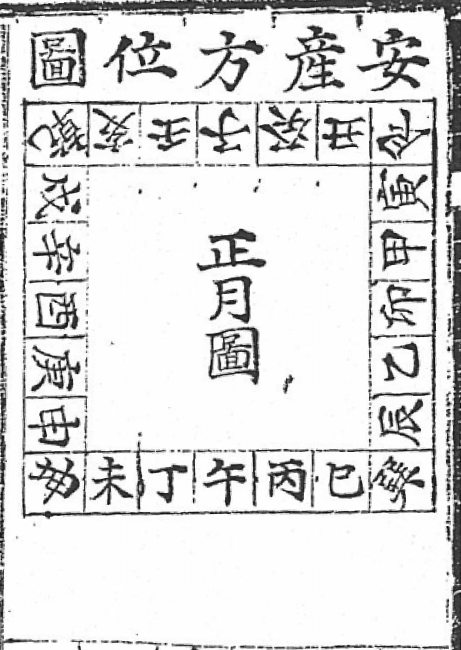 安産方位圖
艮丑癸子壬亥乾
寅甲卯乙辰
正月圖
戌辛酉庚申
巽巳丙午丁未坤